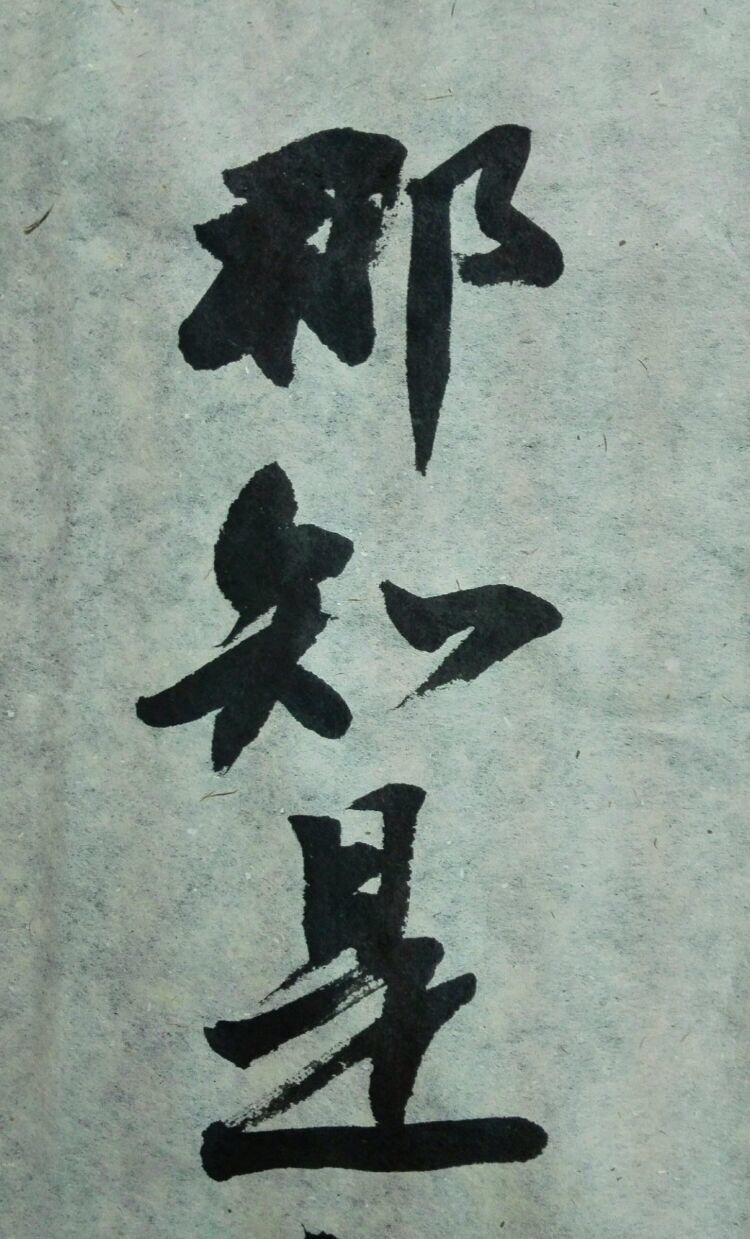 那知是